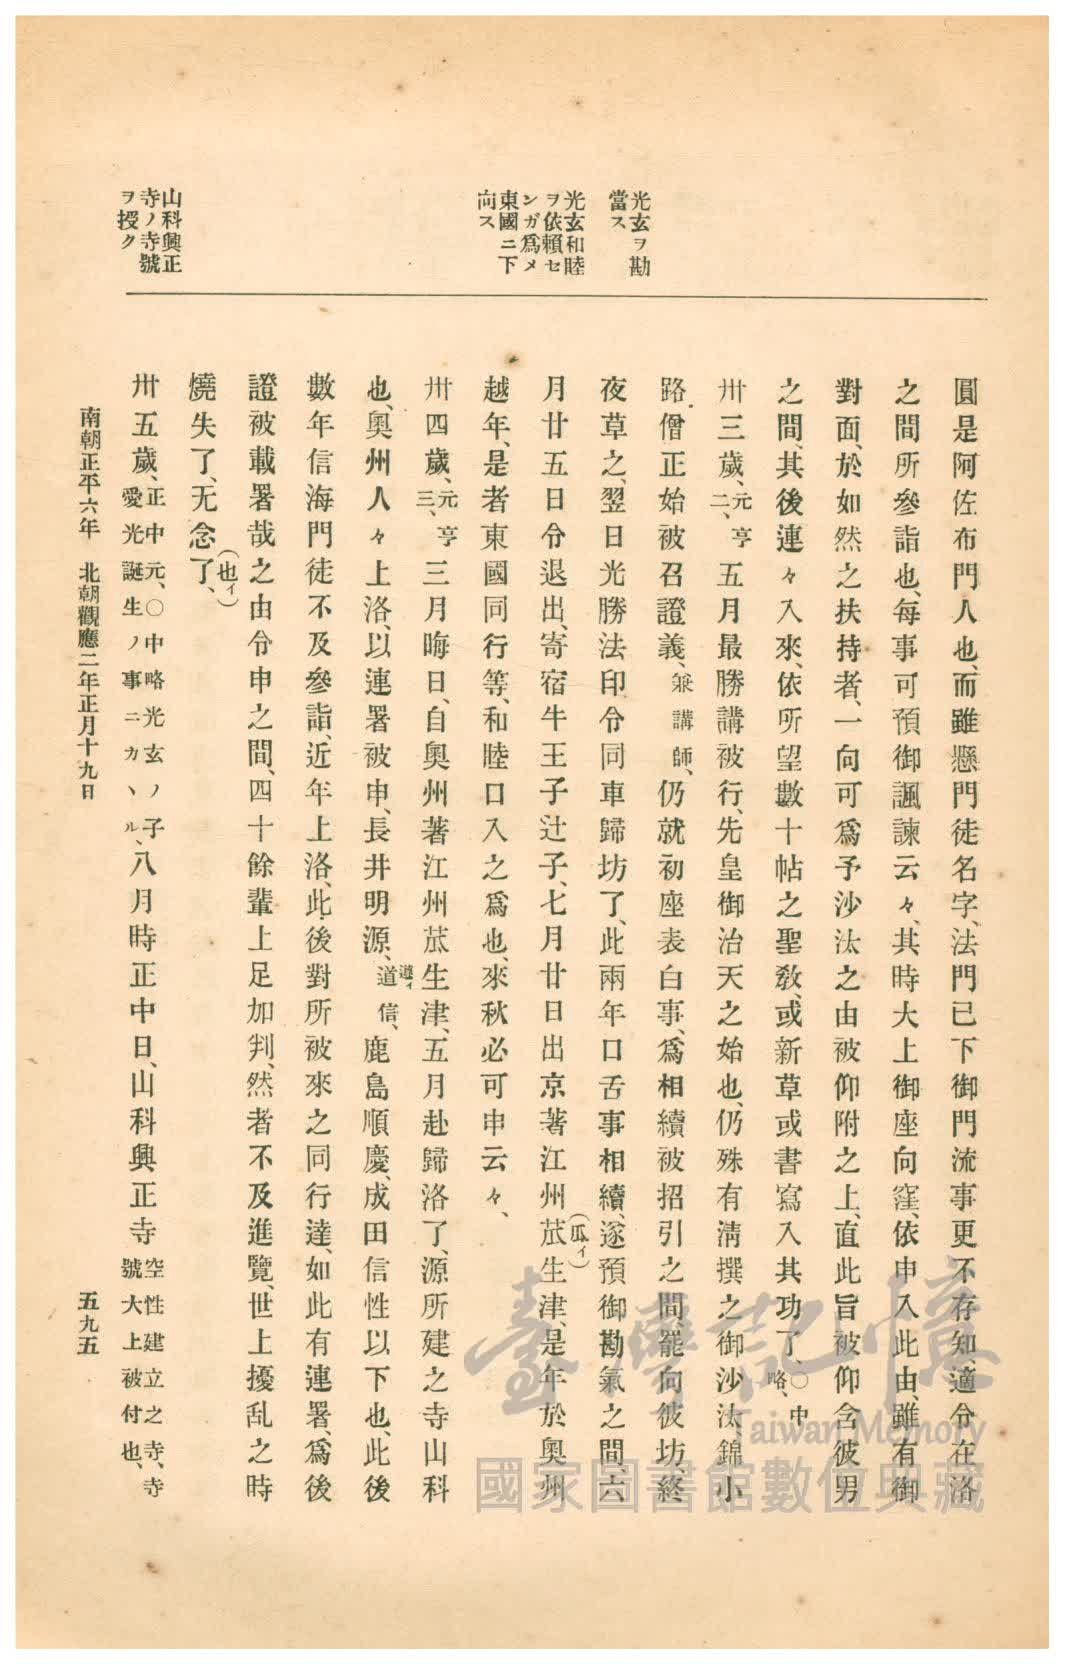 光玄ヲ勘
當ス
光玄和睦
ヲ依賴セ
ンガ爲メ
東國ニ下
向ス
山科興正
寺ノ寺號
ヲ授ク
圓是阿佐布門人也、而雖懸門徒名字、法門已下御門流事更不存知、適令在洛
之間所參詣也、每事可預御諷諫云々、其時大上御座向窪、依申入此由、雖有御
對面、於如然之扶持者、一向可爲予沙汰之由被仰附之上、直此旨被仰含彼男
之間、其後連々入來、依所望數十帖之聖敎、或新草或書寫入其功了、〇中略、
卅三歲、元亨二、五月最勝講被行、先皇御治天之始也、仍殊有淸撰之御沙汰、錦小
路僧正始被召證義、兼講師、仍就初座表白事、爲相續被招引之間、罷向彼坊、終
夜草之、翌日光勝法印令同車歸坊了、此兩年口舌事相續、遂預御勘氣之間、六
月廿五日令退出、寄宿牛王子辻子、七月廿日出京著江州苽(瓜イ)生津、是年於奧州
越年、是者東國同行等、和睦口入之爲也、來秋必可申云々、
卅四歲、元亨三、三月晦日、自奧州著江州苽生津、五月赴歸洛了、源所建之寺山科
也、奧州人々上洛、以連署被申、長井明源、道遵イ信、鹿島順慶、成田信性以下也、此後
數年信海門徒不及參詣、近年上洛、此後對所被來之同行達、如此有連署、爲後
證被載署哉之由令申之間、四十餘輩上足加判、然者不及進覽、世上擾乱之時
燒失了、无念了、(也イ)
卅五歲、正中元、〇中略光玄ノ子、愛光誕生ノ事ニカヽル、八月時正中日、山科興正寺空性建立之寺、寺號大上被付也、
南朝正平六年　北朝觀應二年正月十九日
五九五
臺灣記憶
Taiwan Memory
國家圖書館數位典藏